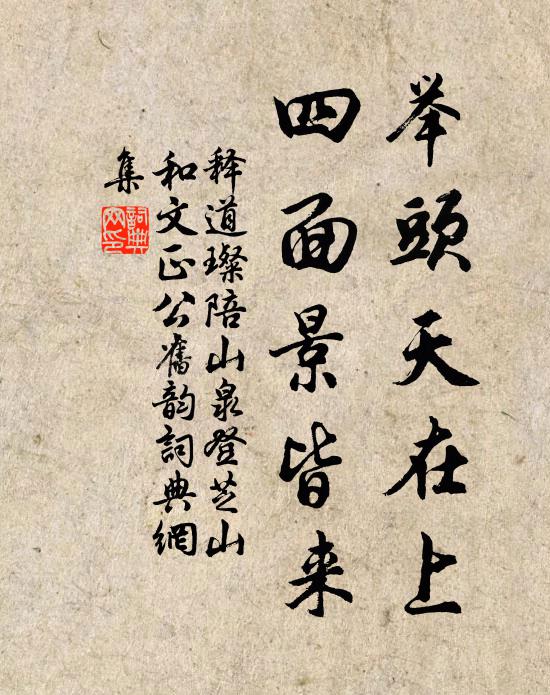 举頭天在上
四面景皆来
释道璨陪山泉登芝山
和文正公舊韵詞典網
集
詞典网印